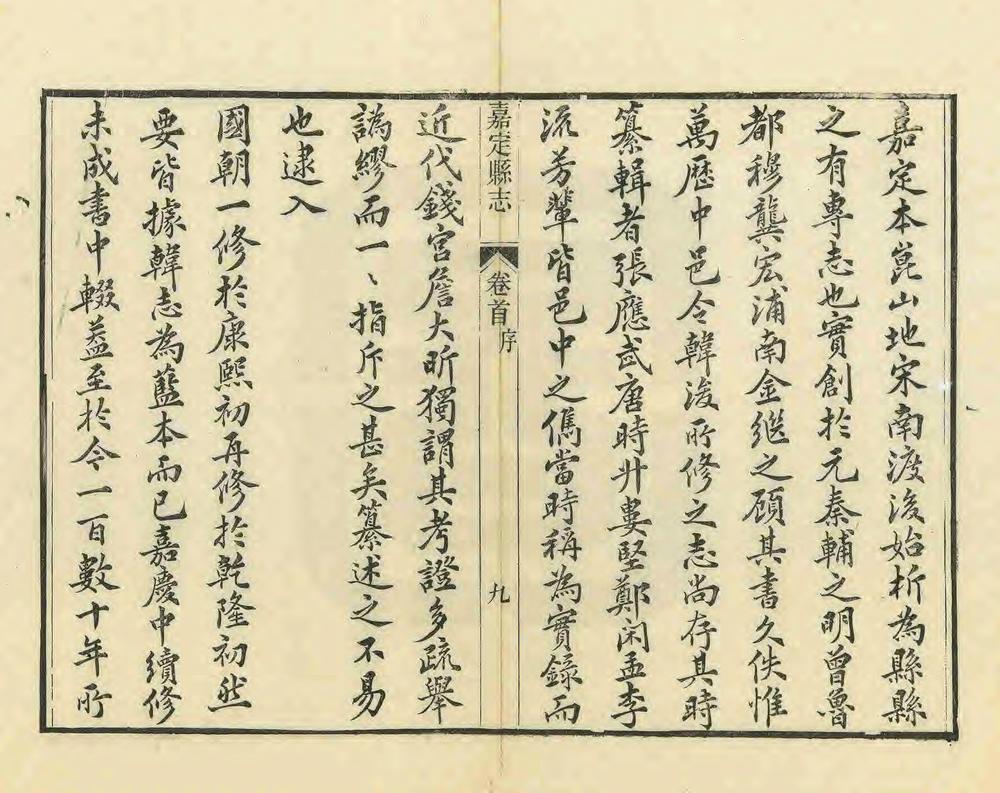 嘉定本崑山地宋南渡後始析為縣縣
之有專志也實創於元秦輔之明曾魯
都穆龔宏浦南金繼之顧其書久佚惟
萬歷中邑令韓浚所修之志尚存其時
纂輯者張應武唐時升婁堅鄭闲孟李
流芳輩皆邑中之儁當時稱為實錄而
嘉定縣志
卷首
序
九
近代錢宮詹大昕獨謂其考證多疏舉
譌繆而一〻指斥之甚矣纂述之不易
也逮入
國朝一修於康熙初再修於乾隆初然
要皆據韓志為藍本而已嘉慶中續修
未成書中輟蓋至於今一百數十年所